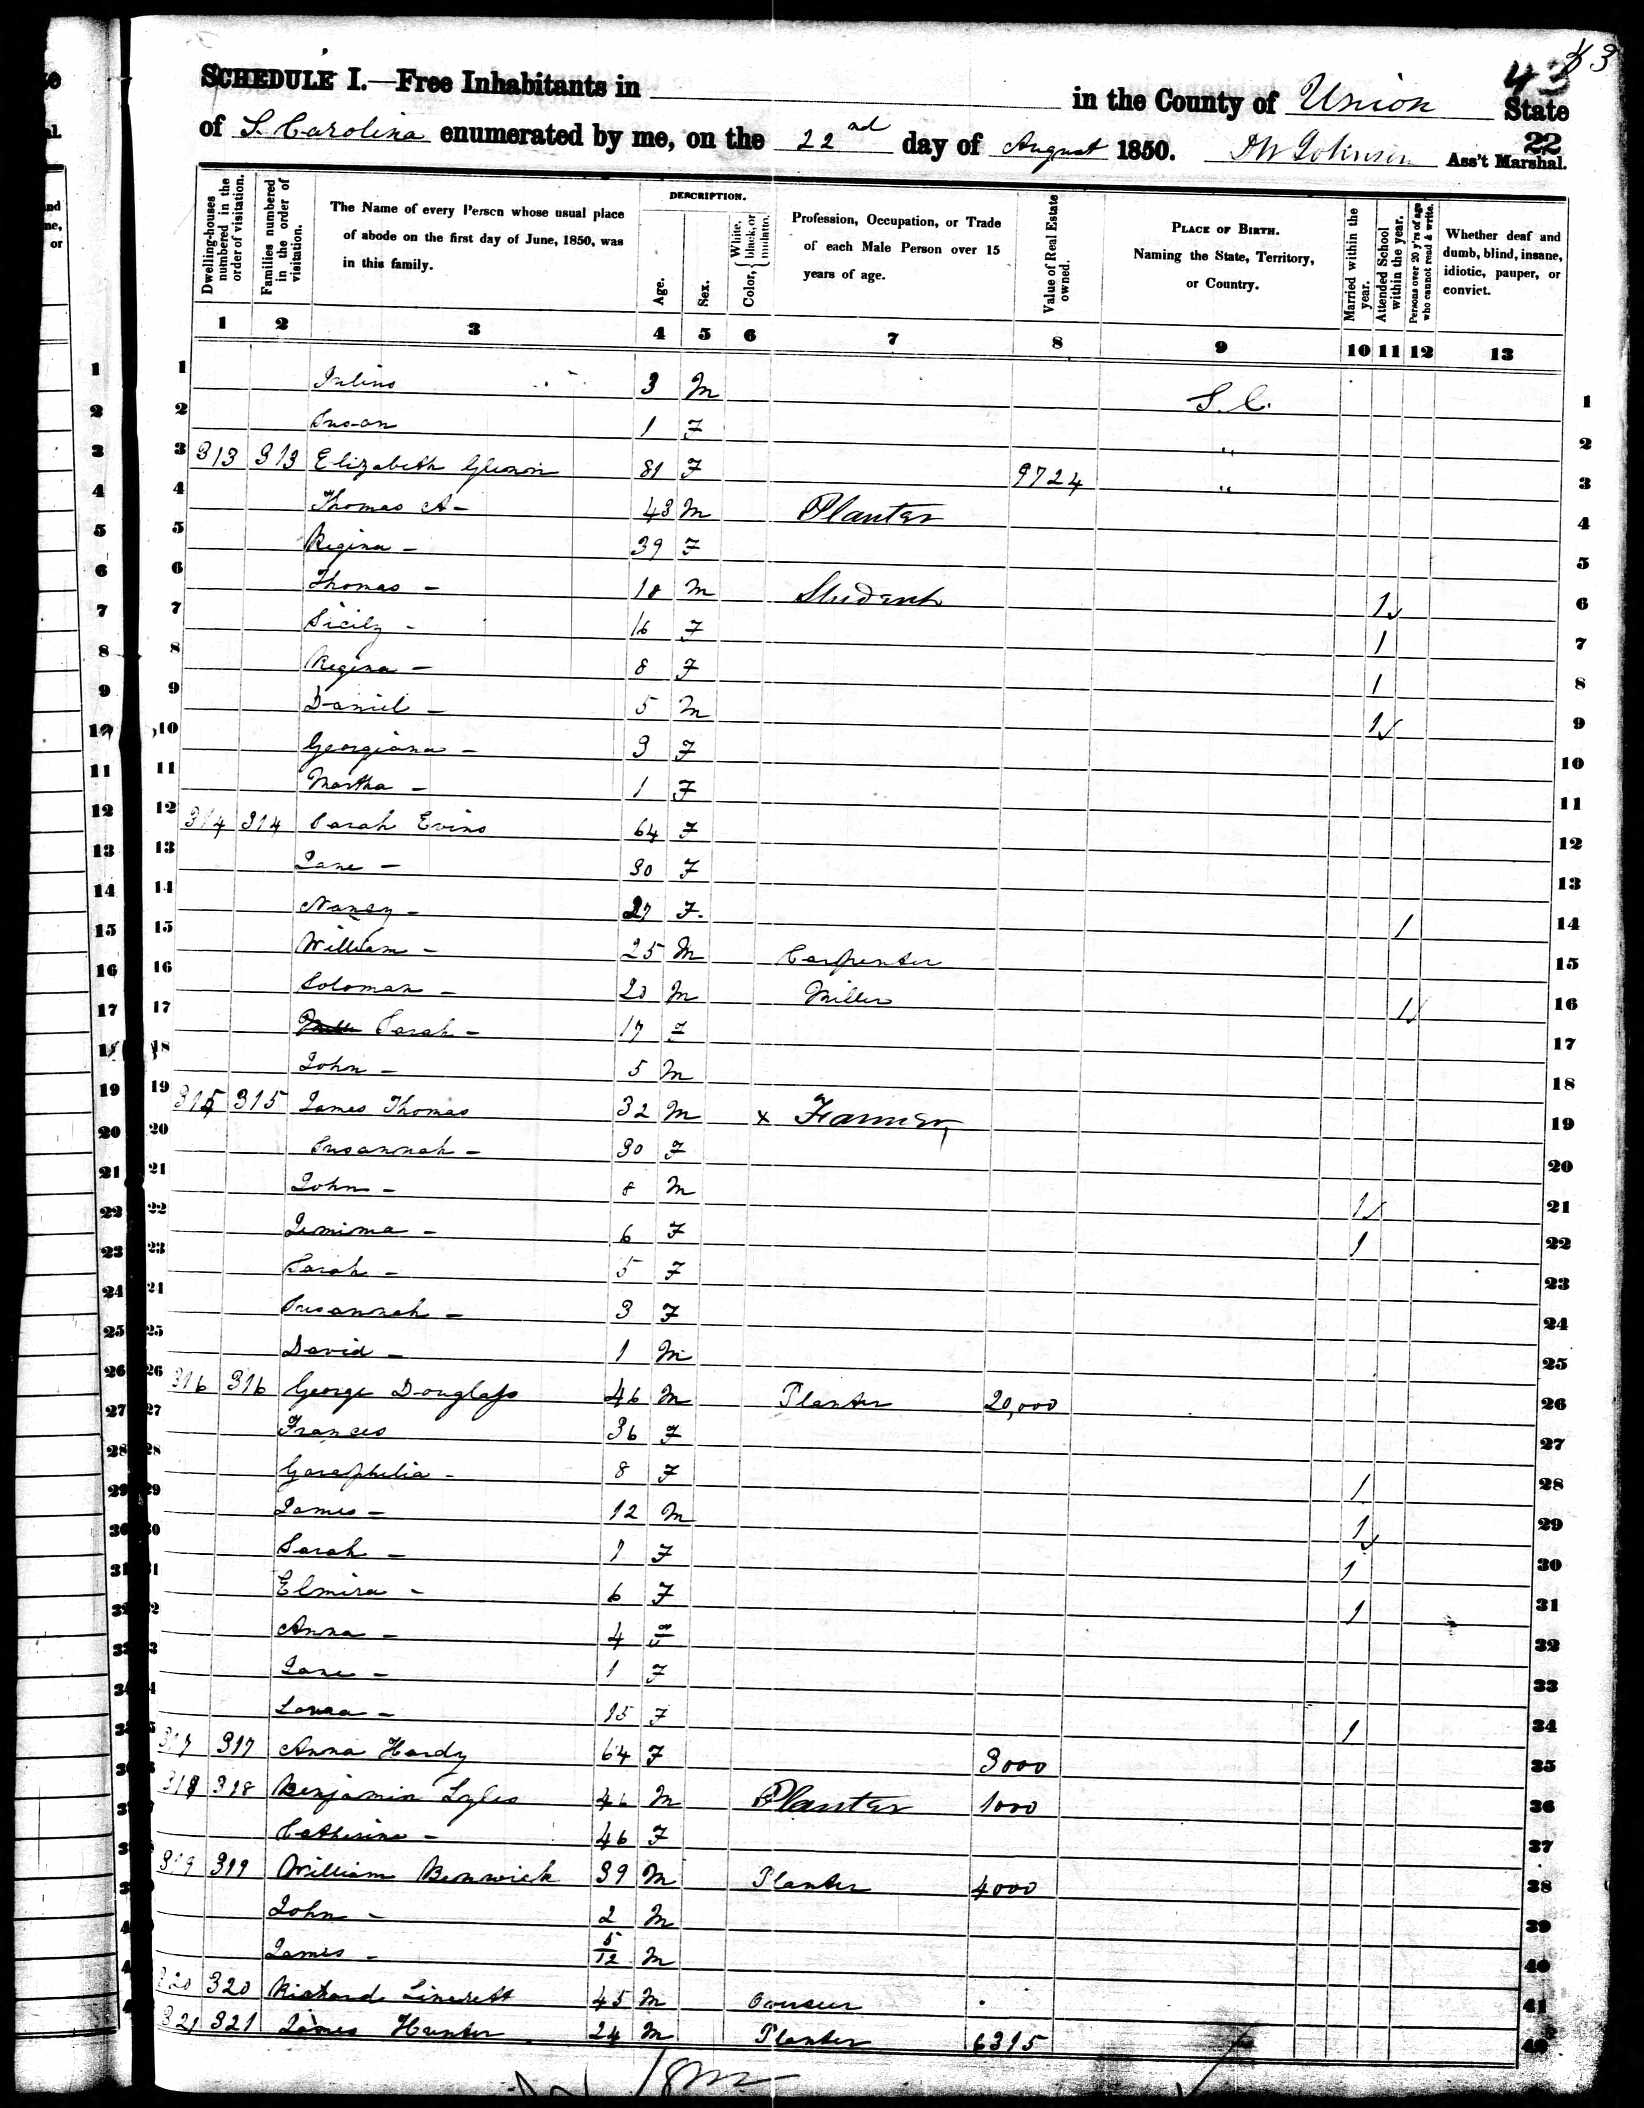 43
SCHEDULE I.—Free Inhabitants in in the County of Union State
of S. Carolina enumerated by me, on the 22nd day of August 1850. Johnson Ass't Marshal.
22
Dwelling-houses numbered in the order of visitation.
Families numbered in the order of visitation.
The Name of every Person whose usual place of abode on the first day of June, 1850, was in this family.
DESCRIPTION.
Age.
Sex.
Color, White, black, or mulatto.
Profession, Occupation, or Trade of each Male Person over 15 years of age.
Value of Real Estate owned.
PLACE OF BIRTH. Naming the State, Territory, or Country.
Married within the year.
Attended School within the year.
Persons over 20 y'rs of age who cannot read & write.
Whether deaf and dumb, blind, insane, idiotic, pauper, or convict.
1 2 3 4 5 6 7 8 9 10 11 12 13
1 3 M S. C. 1
2 Susan 1 F " 2
3 313 313 Elizabeth 81 F 9724 " 3
4 Thomas A - 43 M Planter 4
5 Regina - 39 F 5
6 Thomas - 18 M Student 1 6
7 Sicily - 16 F 1 7
8 Regina - 8 F 1 8
9 Daniel - 5 M 1 9
10 Georgiana - 3 F 10
11 Martha - 1 F 11
12 314 314 Sarah Evins 64 F 12
13 Jane - 30 F 13
14 Nancy - 27 F. 1 14
15 William - 25 M Carpenter 15
16 Soloman - 20 M Miller 1 16
17 Sarah - 17 F 17
18 John - 5 M 18
19 315 315 James Thomas 32 M x Farmer 19
20 Susannah - 30 F 20
21 John - 8 M 1 21
22 Jemima - 6 F 1 22
23 Sarah - 5 F 23
24 Susannah - 3 F 24
25 David - 1 M 25
26 316 316 George Douglass 46 M Planter 20,000 26
27 Frances 36 F 27
28 Garaphelia - 8 F 1 28
29 James - 12 M 1 29
30 Sarah - F 1 30
31 Elmira - 6 F 1 31
32 Anna - 4 F 32
33 Jane - 1 F 33
34 - 15 F 1 34
317 317 Anna Hardy 64 F 3000 35
318 318 Benjamin Lyles 46 M Planter 1000 36
Catherine - 46 F 37
319 319 William Benwick 39 M Planter 4000 38
John - 2 M 39
James - 5/12 M 40
320 320 Richard 45 M Overseer 41
321 321 James Hunter 24 M Planter 6315
18 M